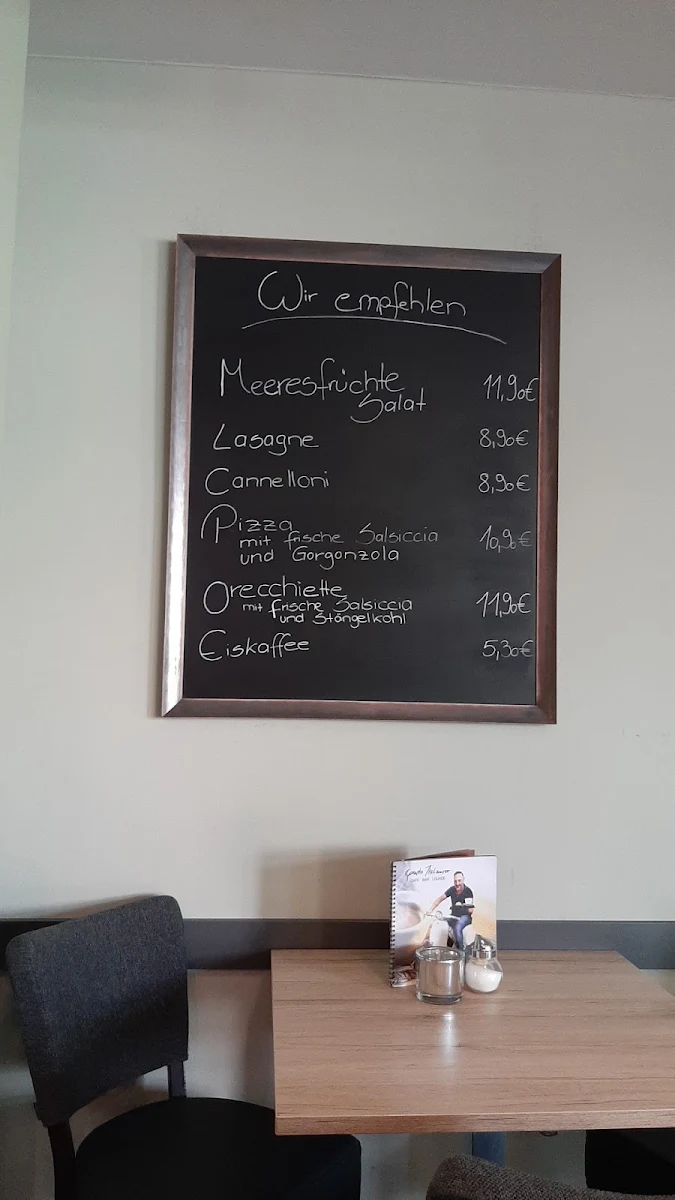 Wir empfehlen
Meeresfrüchte
Salat 11,90€
Lasagne 8,90€
Cannelloni 8,90€
Pizza
mit frische Salsiccia 10,90€
und Gorgonzola
Orecchiette
mit frische Salsiccia 11,90€
und Stängelkohl
Eiskaffee 5,30€